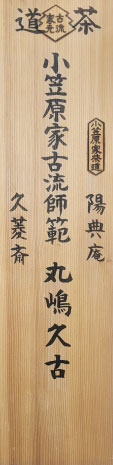 茶道
古流
家元
小笠原家茶道
陽典庵
小笠原家古流師範 丸嶋久古
久菱斎